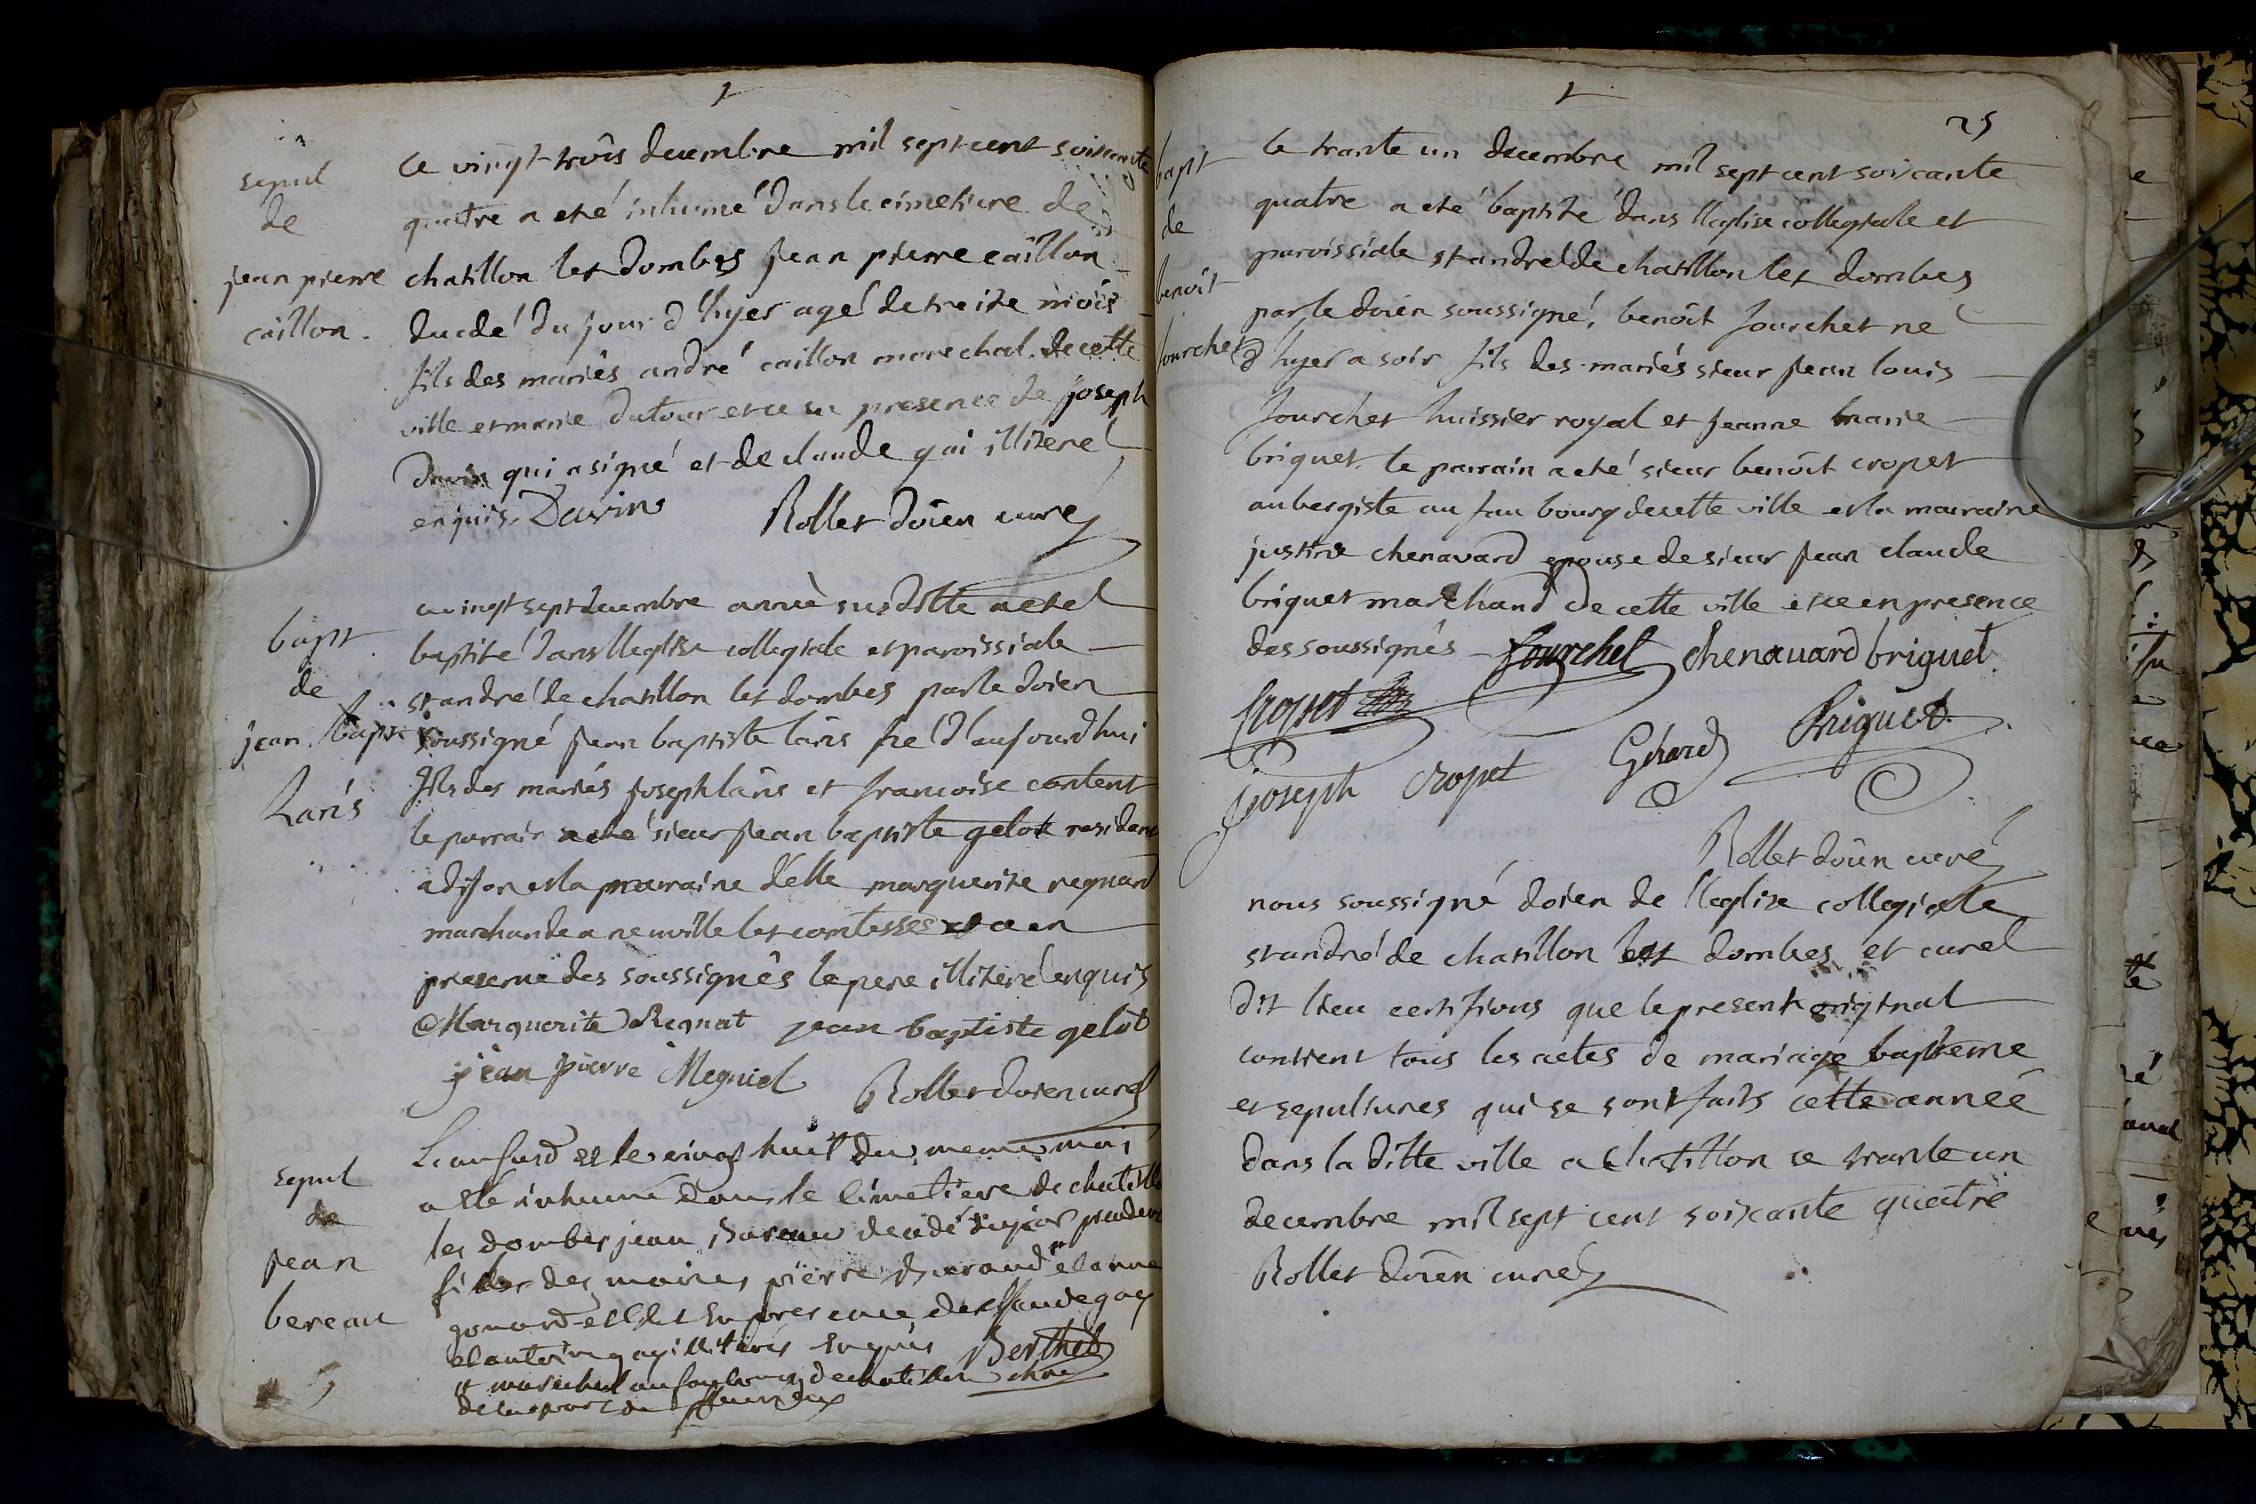 sepul
de
jean pierre
caillon.
ce vingt-trois decembre mil sept cent soixante
quatre a eté inhumé dans le cimetiere de
chatillon les dombes jean pierre caillon
decedé du jour d'hyer agé de treize mois
fils des mariés andré caillon marechal de cette
ville et marie dutour et ce en presence de joseph
davin qui a signé et de claude gai illiteré
enquis. Davin Rollet doïen curé
bapt
de
jean bapt
Laris
ce vingt sept decembre année susditte a eté
baptizé dans l'eglise collegiale et paroissiale
st andré de chatillon les dombes par le doien
soussigné jean baptiste laris né d'aujourd'hui
fils des mariés joseph laris et francoise content
le parrain a eté sieur jean baptiste gelot residant
a dijon et la marraine d'elle marguerite regnard
marchande a neuville les comtesses et ce en
presence des soussignés le pere illiteré enquis
Marguerite Regnat jean baptiste gelot
jean pierre Megniel Rollet doien curé
sepul
de
jean
bereau
L'an susd et le vingt huit du meme mois
a eté inhumé dans le cimetiere de chatillon
les dombes jean decedé du jour precedent
fils des pierre et anne
gonard et ce en presence de Claude gay
et antoine gay illiterés enquis Berthet
marechal au faubourg de chatillon
25
bapt
de
benoit
fourchet
le trante un decembre mil sept cent soixante
quatre a eté baptizé dans l'eglise collegiale et
paroissiale st andré de chatillon les dombes
par le doien soussigné, benoit fourchet né
d'hyer a soir fils des mariés sieur jean louis
fourchet huissier royal et jeanne marie
briquet, le parrain a eté sieur benoit cropet
aubergiste au faubourg de cette ville et la marraine
justine chenavard epouse de sieur jean claude
briquet marchand de cette ville et ce en presence
des soussignés fourchet chenavard briquet.
Cropet
joseph cropet Gérard Briquet
Rollet doïen curé
nous soussigné doien de l'eglise collegiale
st andré de chatillon les dombes et curé
dit lieu certifions que le present original
contient tous les actes de mariage bapteme
et sepultures qui se sont faits cette année
dans la ditte ville a chatillon ce trante un
decembre mil sept cent soixante quatre
Rollet doïen curé